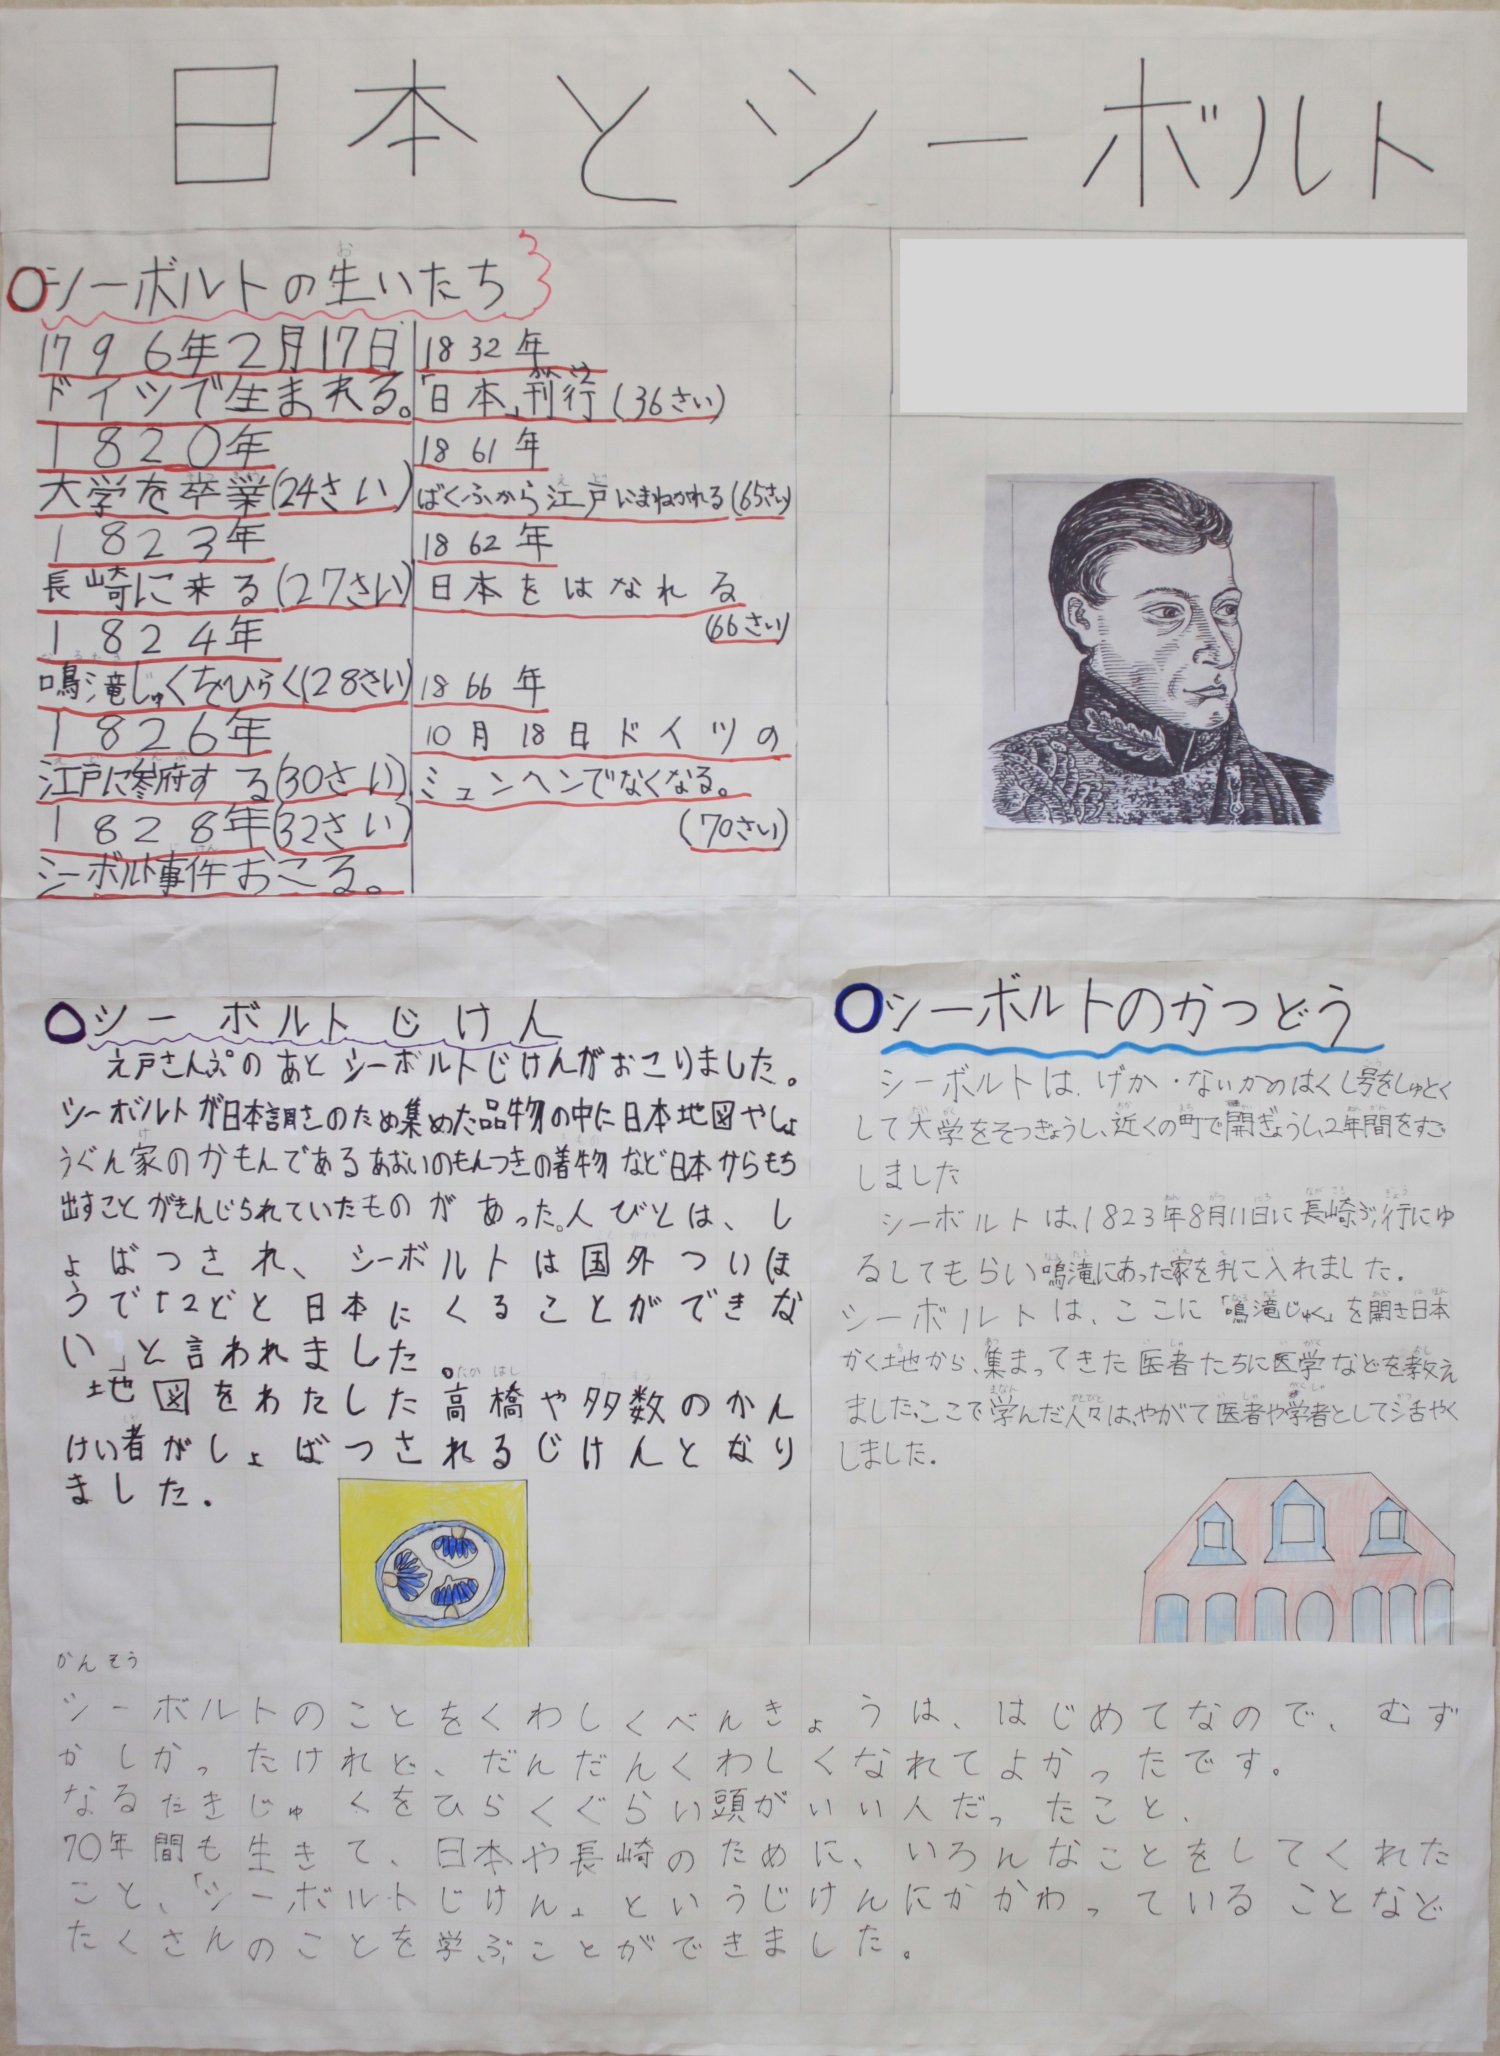 日本とシーボルト
○シーボルトの生いたち
1796年2月17日
ドイツで生まれる。
1820年
大学を卒業(24さい)
1823年
長崎に来る(27さい)
1824年
鳴滝じゅくをひらく(28さい)
1826年
江戸に参府する(30さい)
1828年(32さい)
シーボルト事件おこる。
1832年
「日本」刊行(36さい)
1861年
ばくふから江戸にまねかれる(65さい)
1862年
日本をはなれる
(66さい)
1866年
10月18日ドイツの
ミュンヘンでなくなる。
(70さい)
○シーボルトじけん
え戸さんぷのあとシーボルトじけんがおこりました。
シーボルトが日本調さのため集めた品物の中に日本地図やしょ
うぐん家のかもんであるあおいのもんつきの着物など日本からもち
出すことがきんじられていたものがあった。人びとは、し
ょばつされ、シーボルトは国外ついほ
うで「2どと日本にくることができな
い」と言われました。
地図をわたした高橋や多数のかん
けい者がしょばつされるじけんとなり
ました.
○シーボルトのかつどう
シーボルトは、げか・ないかのはくし号をしゅとく
して大学をそつぎょうし、近くの町で開ぎょうし、2年間をすご
しました
シーボルトは、1823年8月11日に長崎ぶ行にゆ
るしてもらい鳴滝にあった家を手に入れました.
シーボルトは、ここに「鳴滝じゅく」を開き日本
かく地から、集まってきた医者たちに医学などを教え
ました。ここで学んだ人々は、やがて医者や学者としてかつやく
しました.
かんそう
シーボルトのことをくわしくべんきょうは、はじめてなので、むず
かしかったけれど、だんだんくわしくなれてよかったです。
なるたきじゅくをひらくぐらい頭がいい人だったこと、
70年間も生きて、日本や長崎のために、いろんなことをしてくれた
こと、「シーボルトじけん」というじけんにかかわっていることなど
たくさんのことを学ぶことができました。